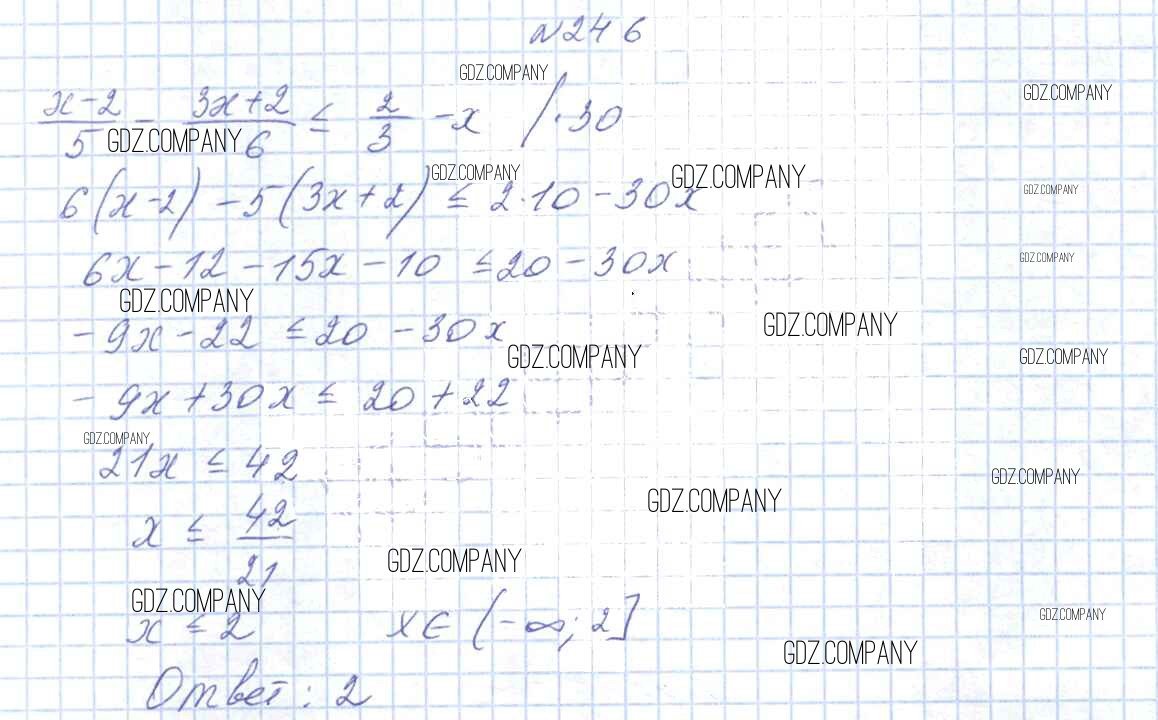 N246
GDZ.COMPANY
GDZ.COMPANY
(x-2)/5 - (3x+2)/6 ≤ 2/3 - x /·30
GDZ.COMPANY
GDZ.COMPANY
GDZ.COMPANY
GDZ.COMPANY
6(x-2) - 5(3x+2) ≤ 2·10 - 30x
6x - 12 - 15x - 10 ≤ 20 - 30x
GDZ.COMPANY
GDZ.COMPANY
GDZ.COMPANY
-9x - 22 ≤ 20 - 30x
GDZ.COMPANY
GDZ.COMPANY
-9x + 30x ≤ 20 + 22
GDZ.COMPANY
21x ≤ 42
GDZ.COMPANY
GDZ.COMPANY
x ≤ 42/21
GDZ.COMPANY
GDZ.COMPANY
GDZ.COMPANY
x ≤ 2 x∈(-∞; 2]
GDZ.COMPANY
Ответ: 2